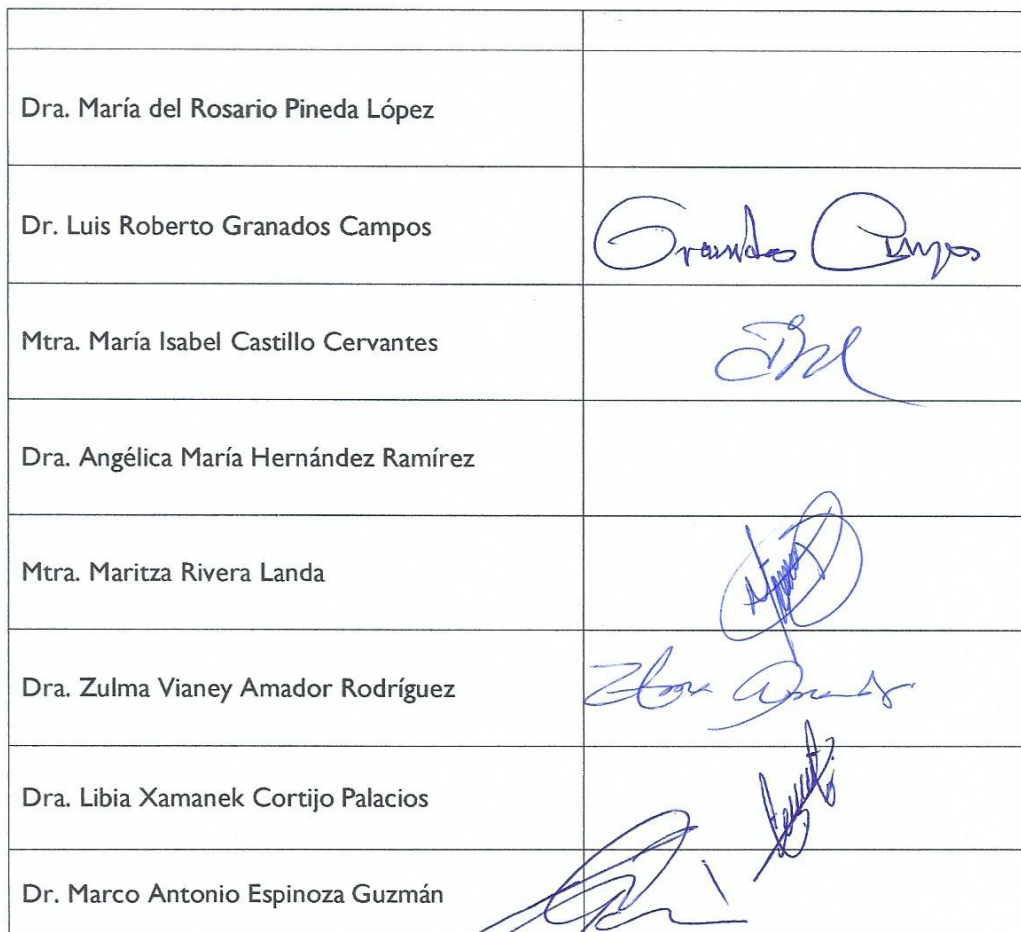 Dra. María del Rosario Pineda López
Dr. Luis Roberto Granados Campos
Granados Campos
Mtra. María Isabel Castillo Cervantes
Dra. Angélica María Hernández Ramírez
Mtra. Maritza Rivera Landa
Dra. Zulma Vianey Amador Rodríguez
Dra. Libia Xamanek Cortijo Palacios
Dr. Marco Antonio Espinoza Guzmán